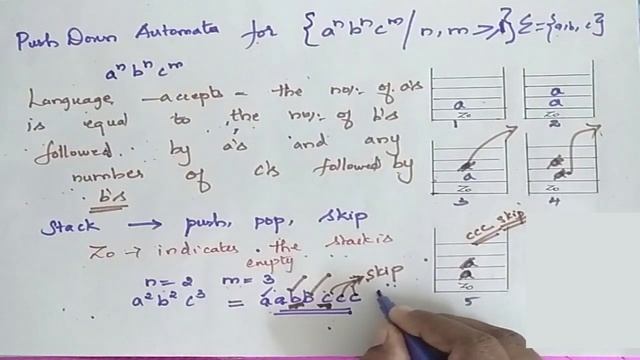 Push Down Automata for {aⁿbⁿcᵐ / n, m ≥ 1} Σ = {a, b, c}
aⁿ bⁿ cᵐ
Language accepts - the no/. of a's
is equal to the no/. of b's
followed by a's and any
number of c's followed by
b's
Stack → push, pop, skip
Z₀ → indicates the stack is
empty
n = 2 m = 3
a² b² c³ = a a b b c c c skip
a
Z₀
1
a
a
Z₀
2
a
a
Z₀
3
a
a
Z₀
4
ccc - skip
a
a
Z₀
5